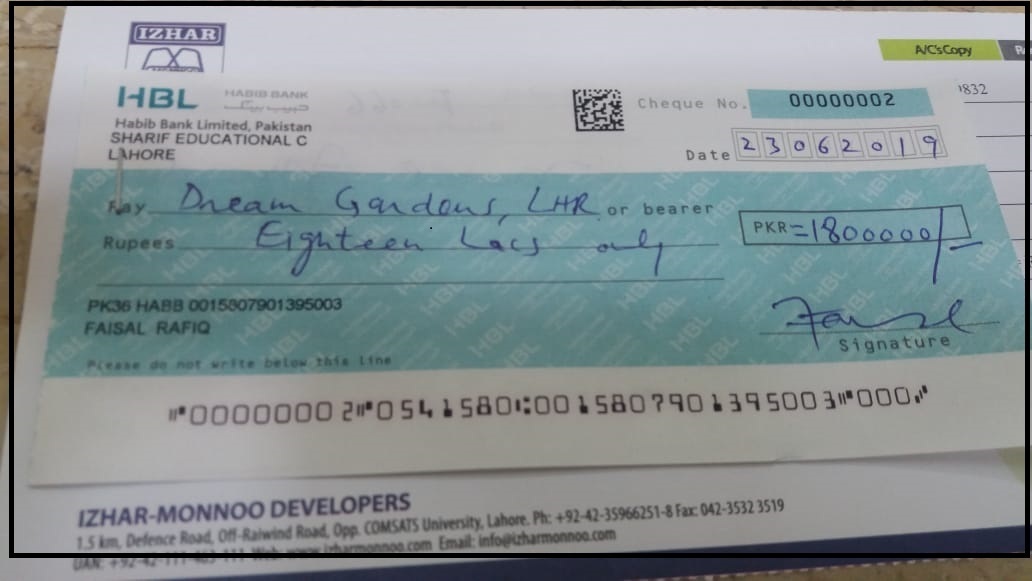 IZHAR
A/C'sCopy
HBL HABIB BANK
حبیب بینک
Habib Bank Limited, Pakistan
SHARIF EDUCATIONAL C
LAHORE
Cheque No. 00000002
832
Date 23062019
Pay Dream Gardens, LHR or bearer
Rupees Eighteen Lacs only
PKR =1800000/-
PK36 HABB 0015807901395003
FAISAL RAFIQ
Signature
Please do not write below this line
⑈00000002⑈0541580⑆0015807901395003⑈000⑈
IZHAR-MONNOO DEVELOPERS
1.5 km, Defence Road, Off-Raiwind Road, Opp. COMSATS University, Lahore. Ph: +92-42-35966251-8 Fax: 042-3532 3519
UAN: +92-42-111-463-111 Web: www.izharmonnoo.com Email: info@izharmonnoo.com